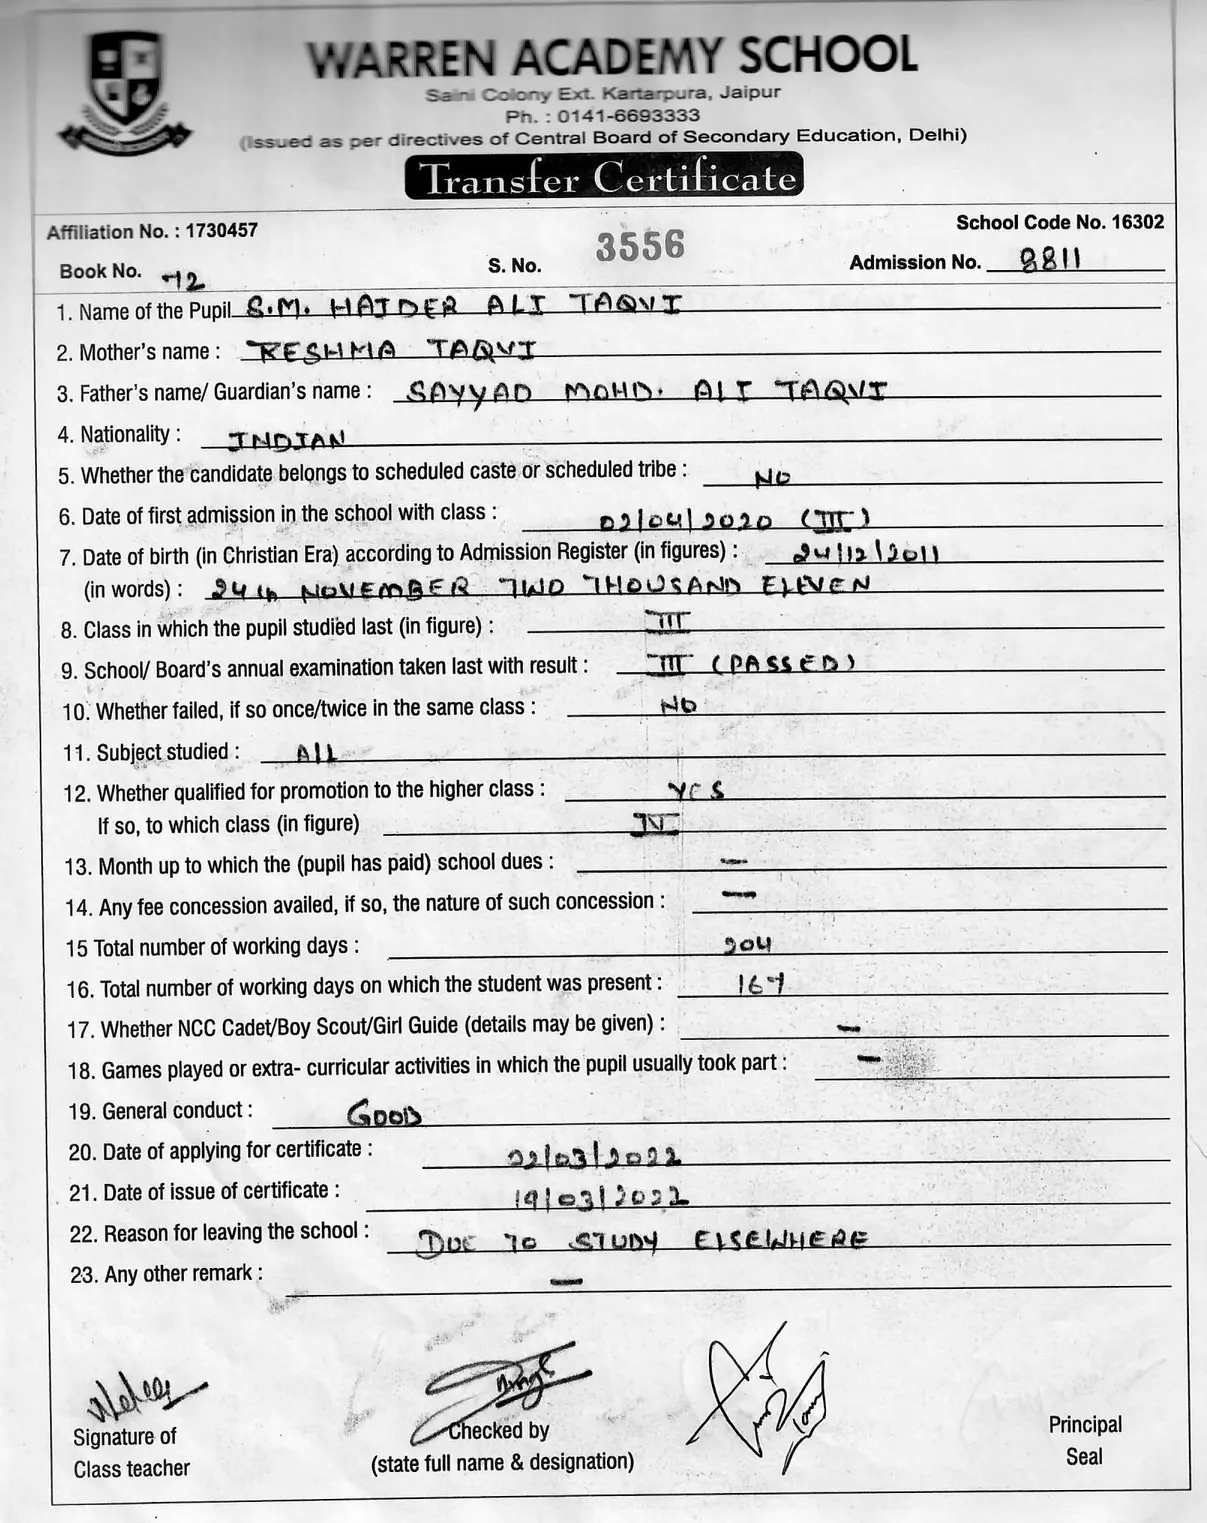 WARREN ACADEMY SCHOOL
Saini Colony Ext. Kartarpura, Jaipur
Ph. : 0141-6693333
(Issued as per directives of Central Board of Secondary Education, Delhi)
Transfer Certificate
Affiliation No. : 1730457 School Code No. 16302
Book No. 72 S. No. 3556 Admission No. 8811
1. Name of the Pupil S.M. HAIDER ALI TAQVI
2. Mother's name : RESHMA TAQVI
3. Father's name/ Guardian's name : SAYYAD MOHD. ALI TAQVI
4. Nationality : INDIAN
5. Whether the candidate belongs to scheduled caste or scheduled tribe : NO
6. Date of first admission in the school with class : 02/04/2020 (III)
7. Date of birth (in Christian Era) according to Admission Register (in figures) : 24/12/2011
(in words) : 24th NOVEMBER TWO THOUSAND ELEVEN
8. Class in which the pupil studied last (in figure) : III
9. School/ Board's annual examination taken last with result : III (PASSED)
10. Whether failed, if so once/twice in the same class : NO
11. Subject studied : All
12. Whether qualified for promotion to the higher class : YES
If so, to which class (in figure) IV
13. Month up to which the (pupil has paid) school dues : —
14. Any fee concession availed, if so, the nature of such concession : —
15 Total number of working days : 204
16. Total number of working days on which the student was present : 167
17. Whether NCC Cadet/Boy Scout/Girl Guide (details may be given) : —
18. Games played or extra- curricular activities in which the pupil usually took part : —
19. General conduct : GOOD
20. Date of applying for certificate : 22/03/2022
21. Date of issue of certificate : 19/03/2022
22. Reason for leaving the school : DUE TO STUDY ELSEWHERE
23. Any other remark : —
Signature of Checked by Principal
Class teacher (state full name & designation) Seal